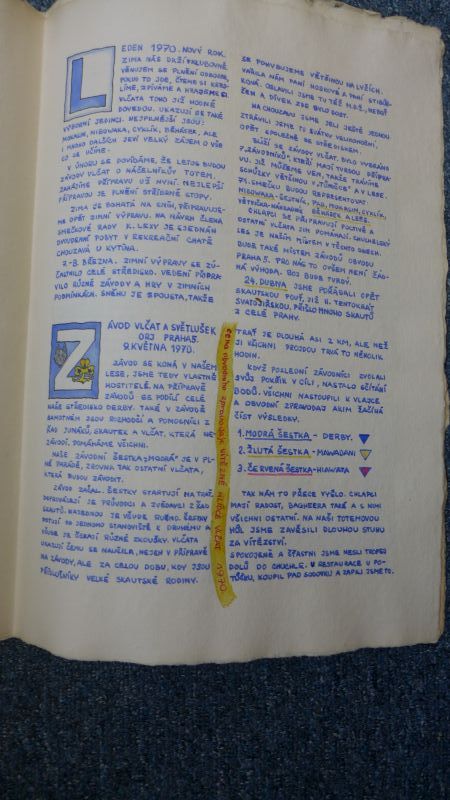 LEDEN 1970. NOVÝ ROK.
ZIMA NÁS DRŽÍ V KLUBOVNĚ
VĚNUJEM SE PLNĚNÍ ODBOREK,
POKUD TO JDE, ČTEME SI KRÉS-
LÍME, ZPÍVÁME A HRAJEME SI.
VLČATA TOHO JIŽ HODNĚ
DOVEDOU. UKAZUJÍ SE TAKÉ
VÝBORNÍ JEDINCI. NEJPILNĚJŠÍ JSOU:
MOKALIN, NIBOWAKA, CYKLÍK, BĚHÁSEK, ALE
I MNOHO DALŠÍCH JEVÍ VELKÝ ZÁJEM O VŠE
CO JE UČÍME.
V ÚNORU SE DOVÍDÁME, ŽE LETOS BUDOU
ZÁVODY VLČAT O NÁČELNÍKŮV TOTEM.
ZAHÁJÍME PŘÍPRAVU UŽ NYNÍ. NEJLEPŠÍ
PŘÍPRAVOU JE PLNĚNÍ STŘÍBRNÉ STOPY.
ZIMA JE BOHATÁ NA SNÍH, PŘIPRAVUJE-
ME OPĚT ZIMNÍ VÝPRAVU. NA NÁVRH ČLENA
SMEČKOVÉ RADY K. LEXY JE SJEDNÁN
DVOUDENNÍ POBYT V REKREAČNÍ CHATĚ
CHOUZAVÁ U KYTÍNA.
7.-8. BŘEZNA. ZIMNÍ VÝPRAVY SE ZÚ-
ČASTNILO CELÉ STŘEDISKO. VEDENÍ PŘIPRA-
VILO RŮZNÉ ZÁVODY A HRY V ZIMNÍCH
PODMÍNKÁCH. SNĚHU JE SPOUSTA, TAKŽE
SE POHYBUJEME VĚTŠINOU NA LYŽÍCH.
VAŘILA NÁM PANÍ NOSKOVÁ A PANÍ STIBŮR-
KOVÁ. OSLAVILI JSME TU TÉŽ M.D.Ž., NEBOŤ
ŽEN A DÍVEK ZDE BYLO DOST.
NA CHOUZAVOU JSME JELI JEŠTĚ JEDNOU
ZTRÁVILI JSME TU SVÁTKY VELIKONOČNÍ,
OPĚT SPOLEČNĚ SE STŘEDISKEM.
BLÍŽÍ SE ZÁVODY VLČAT. BYLO VYBRÁNO
7 „ZÁVODNÍKŮ“, KTEŘÍ MAJÍ TVRDOU PŘÍPRA-
VU. JIŽ MŮŽEME VEN, TAKŽE TRÁVÍME
SCHŮZKY VĚTŠINOU V „TŮMEČKU“ A V LESE.
71. SMEČKU BUDOU REPRESENTOVAT:
NIBOWAKA-ŠESTNÍK, PAD, MOKALIN, CYKLÍK,
VĚTVIČKA-NÁHRADNÍK, BĚHÁSEK A LEXA.
CHLAPCI SE PŘIPRAVUJÍ POCTIVĚ A
OSTATNÍ VLČATA JIM POMÁHAJÍ. CHUCHELSKÝ
LES JE NAŠIM MÍSTEM V TĚCHTO DNECH.
BUDE TAKÉ MÍSTEM ZÁVODŮ OBVODU
PRAHA 5. PRO NÁS TO OVŠEM NENÍ ŽÁD-
NÁ VÝHODA. BOJ BUDE TVRDÝ.
24. DUBNA JSME POŘÁDALI OPĚT
SKAUTSKOU POUŤ, JIŽ II. TENTOKRÁT
SVATOJIŘSKOU. PŘIŠLO MNOHO SKAUTŮ
Z CELÉ PRAHY.
ZÁVOD VLČAT A SVĚTLUŠEK
ORJ PRAHA 5
9. KVĚTNA 1970.
ZÁVOD SE KONÁ V NAŠEM
LESE, JSME TEDY VLASTNĚ
HOSTITELÉ. NA PŘÍPRAVĚ
ZÁVODŮ SE PODÍLÍ CELÉ
NAŠE STŘEDISKO DERBY. TAKÉ V ZÁVODĚ
SAMOTNÉM JSOU ROZHODČÍ A POMOCNÍCI Z
ŘAD JUNÁKŮ, SKAUTEK A VLČAT, KTERÁ NE-
ZÁVODÍ. POMÁHÁME VŠICHNI.
NAŠE ZÁVODNÍ ŠESTKA „MODRÁ“ JE V PL-
NÉ PARÁDĚ, ZROVNA TAK OSTATNÍ VLČATA,
KTERÁ BUDOU ZÁVODIT.
ZÁVOD ZAČAL. ŠESTKY STARTUJÍ NA TRAŤ,
DOPROVÁZEJÍ JE PRŮVODCI A ZVĚDAVCI Z ŘAD
SKAUTŮ. KAŽDOU JE VŠUDE RUŠNO. ŠESTKY
PUTUJÍ OD JEDNOHO STANOVIŠTĚ K DRUHÉMU A
VŠUDE JE ČEKAJÍ RŮZNÉ ZKOUŠKY. VLČATA
UKAZUJÍ ČEMU SE NAUČILA, NEJEN V PŘÍPRAVĚ
NA ZÁVODY, ALE ZA CELOU DOBU, KDY JSOU
PŘÍSLUŠNÍKY VELKÉ SKAUTSKÉ RODINY.
CENA OBVODNÍHO ZPRAVODAJE VÍTĚZNÉ HLÍDCE VLČAT 1970
TRAŤ JE DLOUHÁ ASI 2 KM, ALE NEŽ
JI VŠICHNI PROJDOU TRVÁ TO NĚKOLIK
HODIN.
KDYŽ POSLEDNÍ ZÁVODNÍCI ZVOLALI
SVŮJ POKŘIK V CÍLI, NASTALO SČÍTÁNÍ
BODŮ. VŠICHNI NASTOUPILI K VLAJCE
A OBVODNÍ ZPRAVODAJ AKIM ZAČÍNÁ
ČÍST VÝSLEDKY.
1. MODRÁ ŠESTKA - DERBY,
2. ŽLUTÁ ŠESTKA - MAWADANI
3. ČERVENÁ ŠESTKA - HIAWATA
TAK NÁM TO PŘECE VYŠLO. CHLAPCI
MAJÍ RADOST, BAGHEERA TAKÉ A S NIMI
VŠICHNI OSTATNÍ. NA NAŠI TOTEMOVOU
HŮL JSME ZAVĚSILI DLOUHOU STUHU
ZA VÍTĚZSTVÍ.
SPOKOJENĚ A ŠŤASTNI JSME NESLI TROFEJ
DOLŮ DO CHUCHLE. V RESTAURACE U PO-
TŮČKU, KOUPIL PAD SODOVKU A ZAPILI JSME TO.